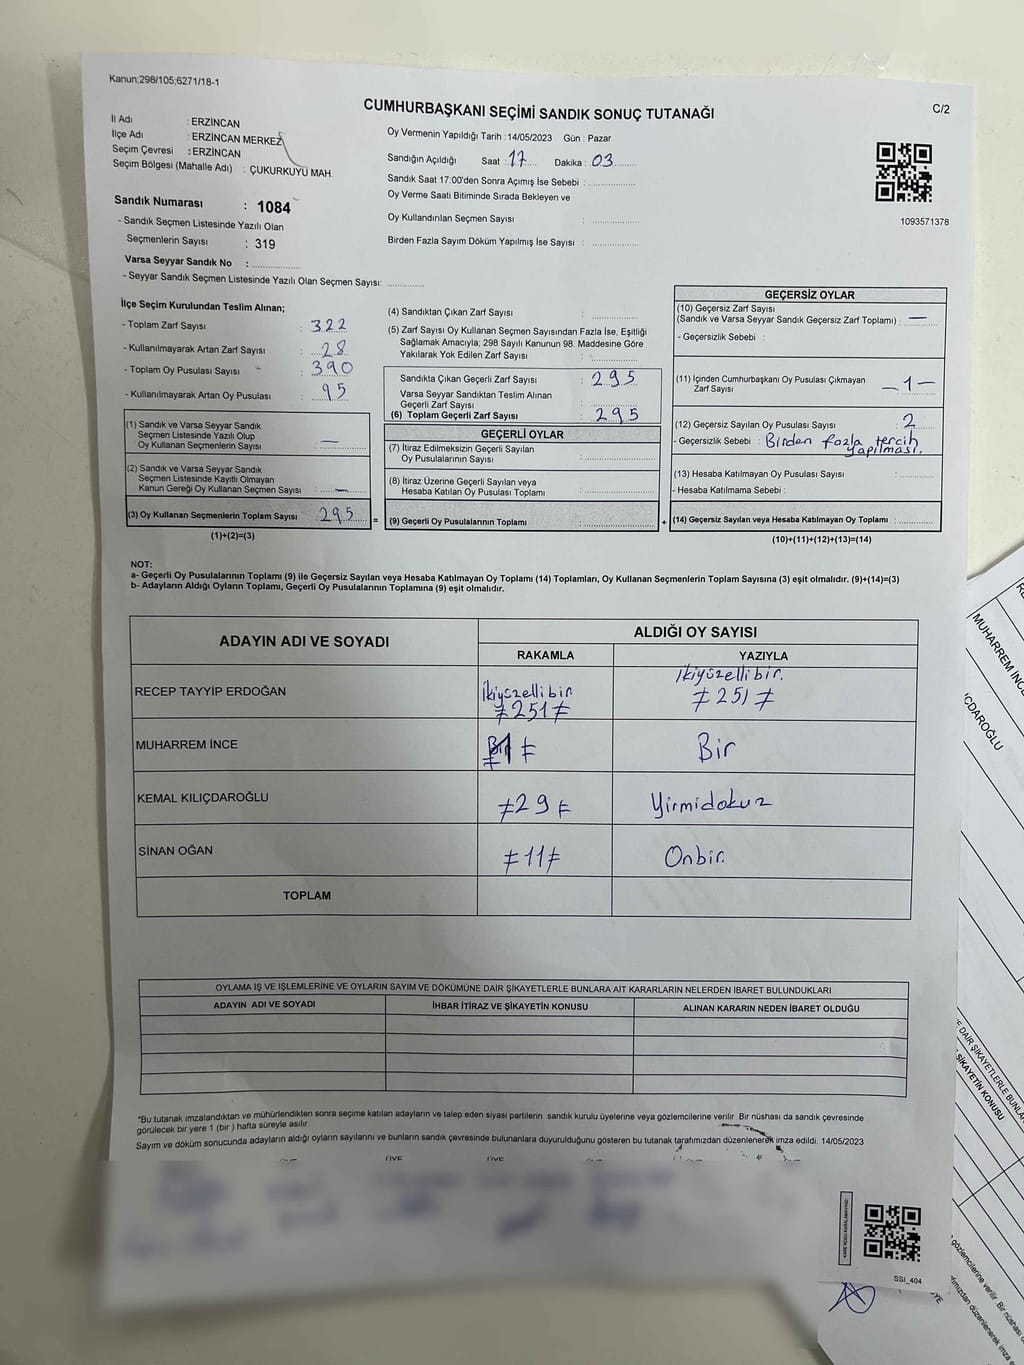 Kanun;298/105;6271/18-1
CUMHURBAŞKANI SEÇİMİ SANDIK SONUÇ TUTANAĞI
C/2
İl Adı : ERZİNCAN
İlçe Adı : ERZİNCAN MERKEZ
Seçim Çevresi : ERZİNCAN
Seçim Bölgesi (Mahalle Adı) : ÇUKURKUYU MAH.
Sandık Numarası : 1084
- Sandık Seçmen Listesinde Yazılı Olan
Seçmenlerin Sayısı : 319
Varsa Seyyar Sandık No :
- Seyyar Sandık Seçmen Listesinde Yazılı Olan Seçmen Sayısı:
Oy Vermenin Yapıldığı Tarih : 14/05/2023 Gün : Pazar
Sandığın Açıldığı Saat : 17 Dakika : 03
Sandık Saat 17:00'den Sonra Açılmış İse Sebebi :
Oy Verme Saati Bitiminde Sırada Bekleyen ve
Oy Kullandırılan Seçmen Sayısı :
Birden Fazla Sayım Döküm Yapılmış İse Sayısı :
1093571378
İlçe Seçim Kurulundan Teslim Alınan;
- Toplam Zarf Sayısı : 322
- Kullanılmayarak Artan Zarf Sayısı : 28
- Toplam Oy Pusulası Sayısı : 390
- Kullanılmayarak Artan Oy Pusulası : 95
(1) Sandık ve Varsa Seyyar Sandık
Seçmen Listesinde Yazılı Olup
Oy Kullanan Seçmenlerin Sayısı : —
(2) Sandık ve Varsa Seyyar Sandık
Seçmen Listesinde Kayıtlı Olmayan
Kanun Gereği Oy Kullanan Seçmen Sayısı : —
(3) Oy Kullanan Seçmenlerin Toplam Sayısı : 295
(1)+(2)=(3)
(4) Sandıktan Çıkan Zarf Sayısı :
(5) Zarf Sayısı Oy Kullanan Seçmen Sayısından Fazla İse, Eşitliği
Sağlamak Amacıyla; 298 Sayılı Kanunun 98. Maddesine Göre
Yakılarak Yok Edilen Zarf Sayısı :
Sandıkta Çıkan Geçerli Zarf Sayısı : 295
Varsa Seyyar Sandıktan Teslim Alınan
Geçerli Zarf Sayısı :
(6) Toplam Geçerli Zarf Sayısı : 295
GEÇERLİ OYLAR
(7) İtiraz Edilmeksizin Geçerli Sayılan
Oy Pusulalarının Sayısı :
(8) İtiraz Üzerine Geçerli Sayılan veya
Hesaba Katılan Oy Pusulası Toplamı :
= (9) Geçerli Oy Pusulalarının Toplamı :
GEÇERSİZ OYLAR
(10) Geçersiz Zarf Sayısı
(Sandık ve Varsa Seyyar Sandık Geçersiz Zarf Toplamı) : —
- Geçersizlik Sebebi :
(11) İçinden Cumhurbaşkanı Oy Pusulası Çıkmayan
Zarf Sayısı : —1—
(12) Geçersiz Sayılan Oy Pusulası Sayısı : 2
- Geçersizlik Sebebi : Birden fazla tercih
yapılması.
(13) Hesaba Katılmayan Oy Pusulası Sayısı :
- Hesaba Katılmama Sebebi :
+ (14) Geçersiz Sayılan veya Hesaba Katılmayan Oy Toplamı :
(10)+(11)+(12)+(13)=(14)
NOT:
a- Geçerli Oy Pusulalarının Toplamı (9) ile Geçersiz Sayılan veya Hesaba Katılmayan Oy Toplamı (14) Toplamları, Oy Kullanan Seçmenlerin Toplam Sayısına (3) eşit olmalıdır. (9)+(14)=(3)
b- Adayların Aldığı Oyların Toplamı, Geçerli Oy Pusulalarının Toplamına (9) eşit olmalıdır.
ADAYIN ADI VE SOYADI ALDIĞI OY SAYISI
RAKAMLA YAZIYLA
RECEP TAYYİP ERDOĞAN ikiyüzellibir ≠251≠ ikiyüzellibir. ≠251≠
MUHARREM İNCE ≠1≠ Bir
KEMAL KILIÇDAROĞLU ≠29≠ Yirmidokuz
SİNAN OĞAN ≠11≠ Onbir.
TOPLAM
OYLAMA İŞ VE İŞLEMLERİNE VE OYLARIN SAYIM VE DÖKÜMÜNE DAİR ŞİKAYETLERLE BUNLARA AİT KARARLARIN NELERDEN İBARET BULUNDUKLARI
ADAYIN ADI VE SOYADI İHBAR İTİRAZ VE ŞİKAYETİN KONUSU ALINAN KARARIN NEDEN İBARET OLDUĞU
*Bu tutanak imzalandıktan ve mühürlendikten sonra seçime katılan adayların ve talep eden siyasi partilerin sandık kurulu üyelerine veya gözlemcilerine verilir. Bir nüshası da sandık çevresinde
görülecek bir yere 1 (bir) hafta süreyle asılır.
Sayım ve döküm sonucunda adayların aldığı oyların sayılarını ve bunların sandık çevresinde bulunanlara duyurulduğunu gösteren bu tutanak tarafımızdan düzenlenerek imza edildi. 14/05/2023
ÜYE ÜYE ÜYE
SSİ_404
MUHARREM İNCE
ŞİKAYETİN KONUSU